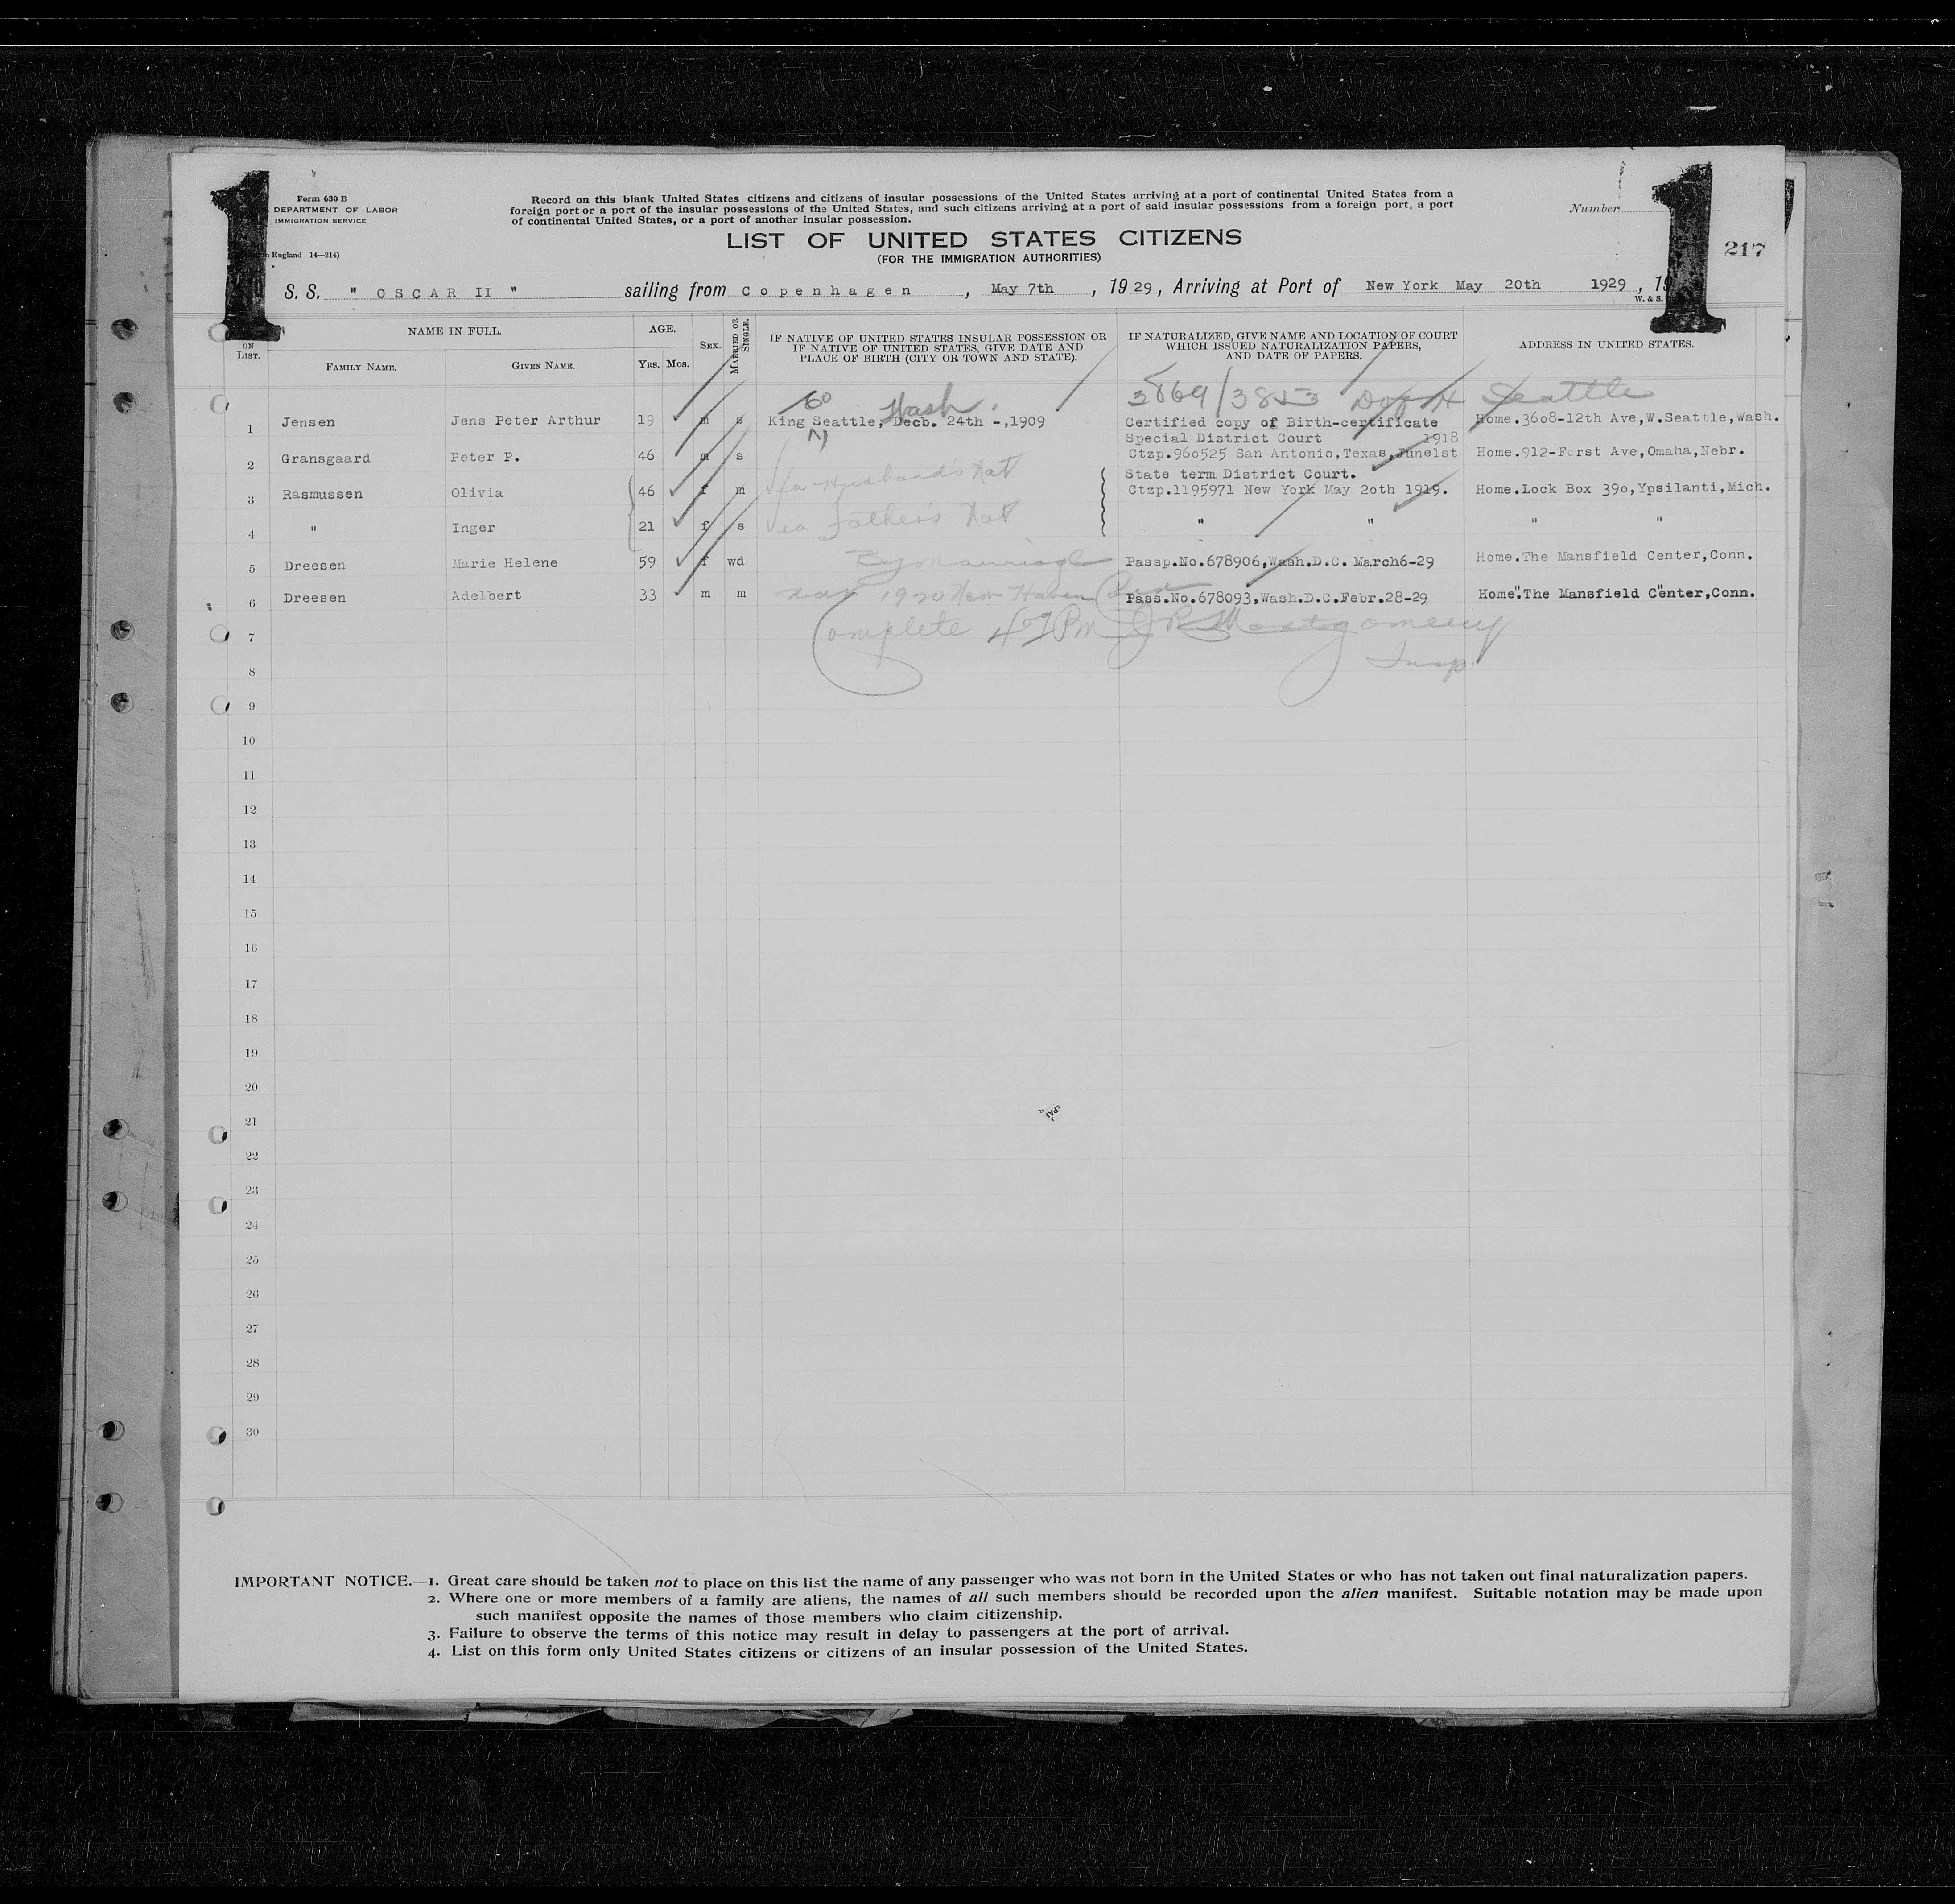 1
1
Form 630 B
DEPARTMENT OF LABOR
IMMIGRATION SERVICE
England 14—214)
Record on this blank United States citizens and citizens of insular possessions of the United States arriving at a port of continental United States from a
foreign port or a port of the insular possessions of the United States, and such citizens arriving at a port of said insular possessions from a foreign port, a port
of continental United States, or a port of another insular possession.
Number
217
LIST OF UNITED STATES CITIZENS
(FOR THE IMMIGRATION AUTHORITIES)
S. S. " OSCAR II " sailing from Copenhagen , May 7th , 1929, Arriving at Port of New York May 20th 1929 , 19
W. & S.
ON LIST.
NAME IN FULL.
FAMILY NAME.
GIVEN NAME.
AGE.
YRS. MOS.
SEX.
MARRIED OR SINGLE.
IF NATIVE OF UNITED STATES INSULAR POSSESSION OR
IF NATIVE OF UNITED STATES, GIVE DATE AND
PLACE OF BIRTH (CITY OR TOWN AND STATE).
IF NATURALIZED, GIVE NAME AND LOCATION OF COURT
WHICH ISSUED NATURALIZATION PAPERS,
AND DATE OF PAPERS.
ADDRESS IN UNITED STATES.
Co Wash. Seattle
1 Jensen Jens Peter Arthur 19 m s King Seattle, Decb. 24th -,1909 Certified copy of Birth-certificate Home.3608-12th Ave,W.Seattle,Wash.
Special District Court 1918
2 Gransgaard Peter P. 46 m s Ctzp.960525 San Antonio,Texas,June1st Home.912-Forst Ave,Omaha,Nebr.
Husband's Nat State term District Court.
3 Rasmussen Olivia 46 f m Ctzp.1195971 New York May 20th 1919. Home.Lock Box 390,Ypsilanti,Mich.
4 " Inger 21 f s Father's Nat " " " "
5 Dreesen Marie Helene 59 f wd By marriage Passp.No.678906,Wash.D.C. March6-29 Home.The Mansfield Center,Conn.
6 Dreesen Adelbert 33 m m 1920 New Haven Pass.No.678093,Wash.D.C.Febr.28-29 Home".The Mansfield C"enter,Conn.
7 Complete PM Montgomery
8 Insp.
9
10
11
12
13
14
15
16
17
18
19
20
21
22
23
24
25
26
27
28
29
30
IMPORTANT NOTICE.—1. Great care should be taken not to place on this list the name of any passenger who was not born in the United States or who has not taken out final naturalization papers.
2. Where one or more members of a family are aliens, the names of all such members should be recorded upon the alien manifest. Suitable notation may be made upon
such manifest opposite the names of those members who claim citizenship.
3. Failure to observe the terms of this notice may result in delay to passengers at the port of arrival.
4. List on this form only United States citizens or citizens of an insular possession of the United States.